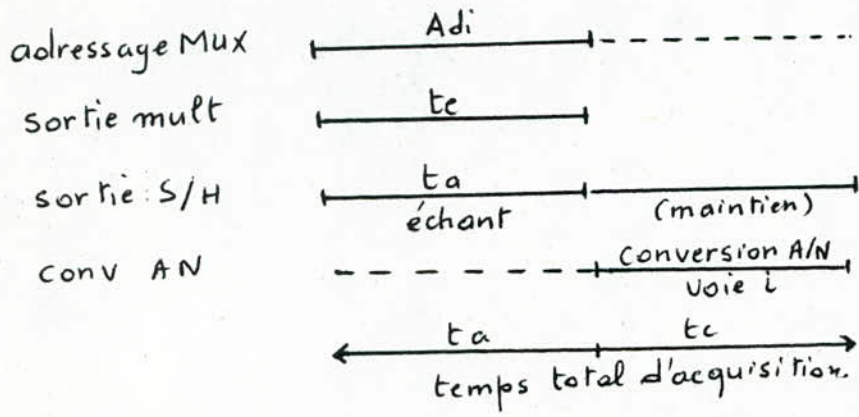 adressage Mux Adi
sortie mult te
sortie S/H ta
échant (maintien)
conv AN Conversion A/N
voie i
ta tc
temps total d'acquisition.